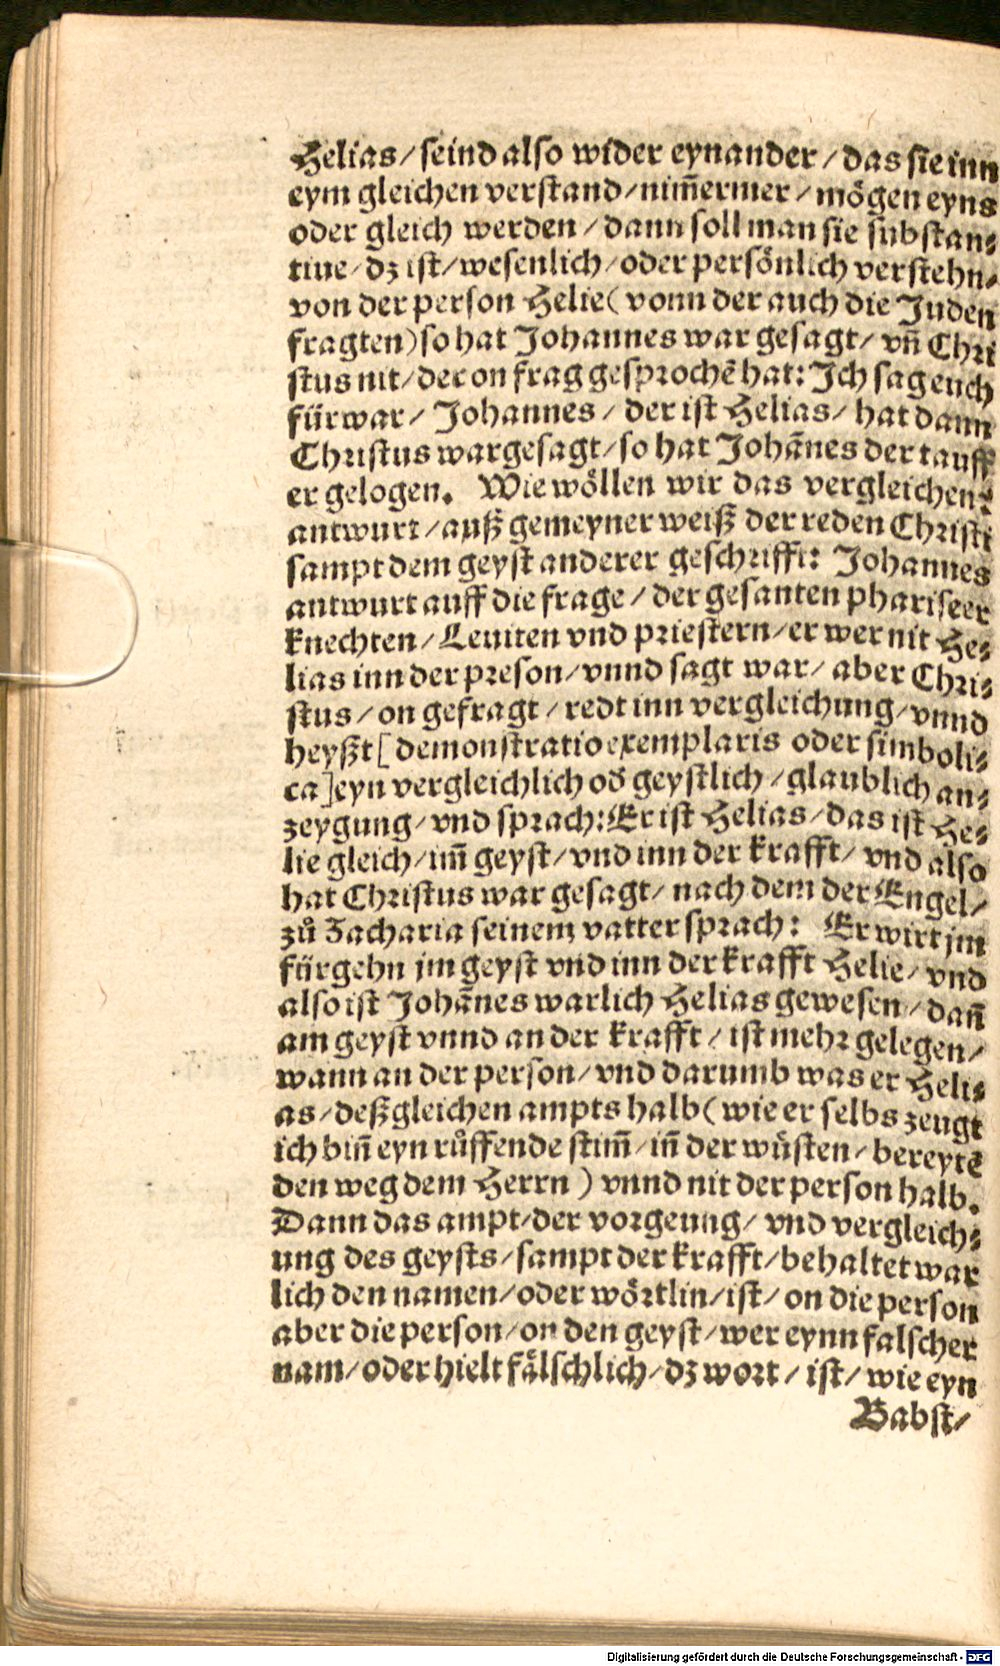 Helias/ seind also wider eynander/ das sie inn
eym gleichen verstand/ nim̃ermer/ mögen eyns
oder gleich werden/ dann soll man sie substan⸗
tiue/ dz ist/ wesenlich/ oder persönlich verstehn/
von der person Helie( vonn der auch die Juden
fragten) so hat Johannes war gesagt/ vñ Chri
stus nit/ der on frag gesprochẽ hat: Ich sag euch
fürwar/ Johannes/ der ist Helias/ hat dann
Christus wargesagt/ so hat Johãnes der tauff
er gelogen. Wie wöllen wir das vergleichen?
antwurt/ auß gemeyner weiß der reden Christi
sampt dem geyst anderer geschrifft: Johannes
antwurt auff die frage/ der gesanten phariseer
knechten/ Leuiten vnd priestern/ er wer nit He⸗
lias inn der preson/ vnnd sagt war/ aber Chri⸗
stus/ on gefragt/ redt inn vergleichung/ vnnd
heyßt[ demonstratio exemplaris oder simboli⸗
ca]eyn vergleichlich od̃ geystlich/ glaublich an⸗
zeygung/ vnd sprach: Er ist Helias/ das ist He⸗
lie gleich/ im̃ geyst/ vnd inn der krafft/ vnd also
hat Christus war gesagt/ nach dem der Engel/
zů Zacharia seinem vatter sprach: Er wirt jm
fürgehn im geyst vnd inn der krafft Helie/ vnd
also ist Johãnes warlich Helias gewesen/ dañ
am geyst vnnd an der krafft/ ist mehr gelegen/
wann an der person/ vnd darumb was er Heli⸗
as/ deßgleichen ampts halb( wie er selbs zeugt
ich biñ eyn růffende stim̃/ iñ der wüsten/ bereytẽ
den weg dem Herrn) vnnd nit der person halb.
Dann das ampt/ der vorgeung/ vnd vergleich⸗
ung des geysts/ sampt der krafft/ behaltet war
lich den namen/ oder wörtlin/ ist/ on die person
aber die person/ on den geyst/ wer eynn falscher
nam/ oder hielt fälschlich/ dz wort/ ist/ wie eyn
Babst/
Digitalisierung gefördert durch die Deutsche Forschungsgemeinschaft - DFG